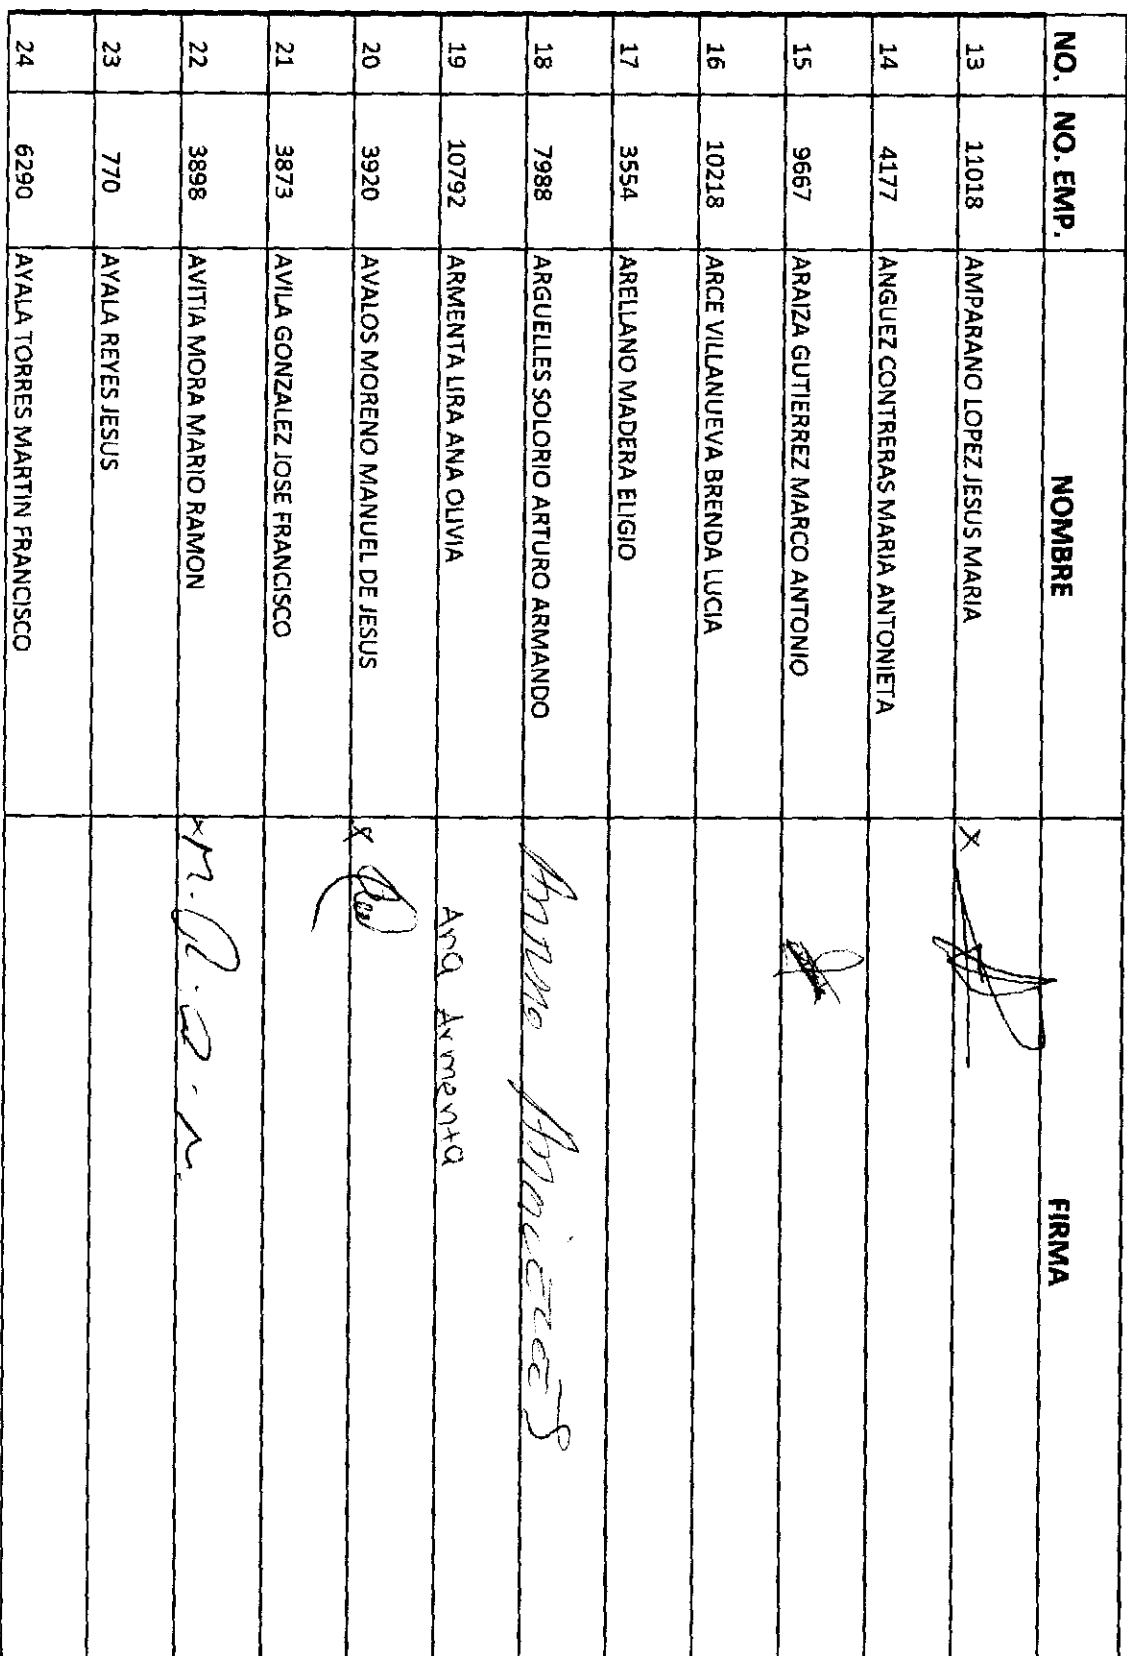 NO. NO. EMP. NOMBRE FIRMA
13 11018 AMPARANO LOPEZ JESUS MARIA X
14 4177 ANGUEZ CONTRERAS MARIA ANTONIETA
15 9667 ARAIZA GUTIERREZ MARCO ANTONIO
16 10218 ARCE VILLANUEVA BRENDA LUCIA
17 3554 ARELLANO MADERA ELIGIO
18 7988 ARGUELLES SOLORIO ARTURO ARMANDO
19 10792 ARMENTA LIRA ANA OLIVIA Ana Armenta
20 3920 AVALOS MORENO MANUEL DE JESUS X
21 3873 AVILA GONZALEZ JOSE FRANCISCO
22 3898 AVITIA MORA MARIO RAMON x M.R.A.M.
23 770 AYALA REYES JESUS
24 6290 AYALA TORRES MARTIN FRANCISCO